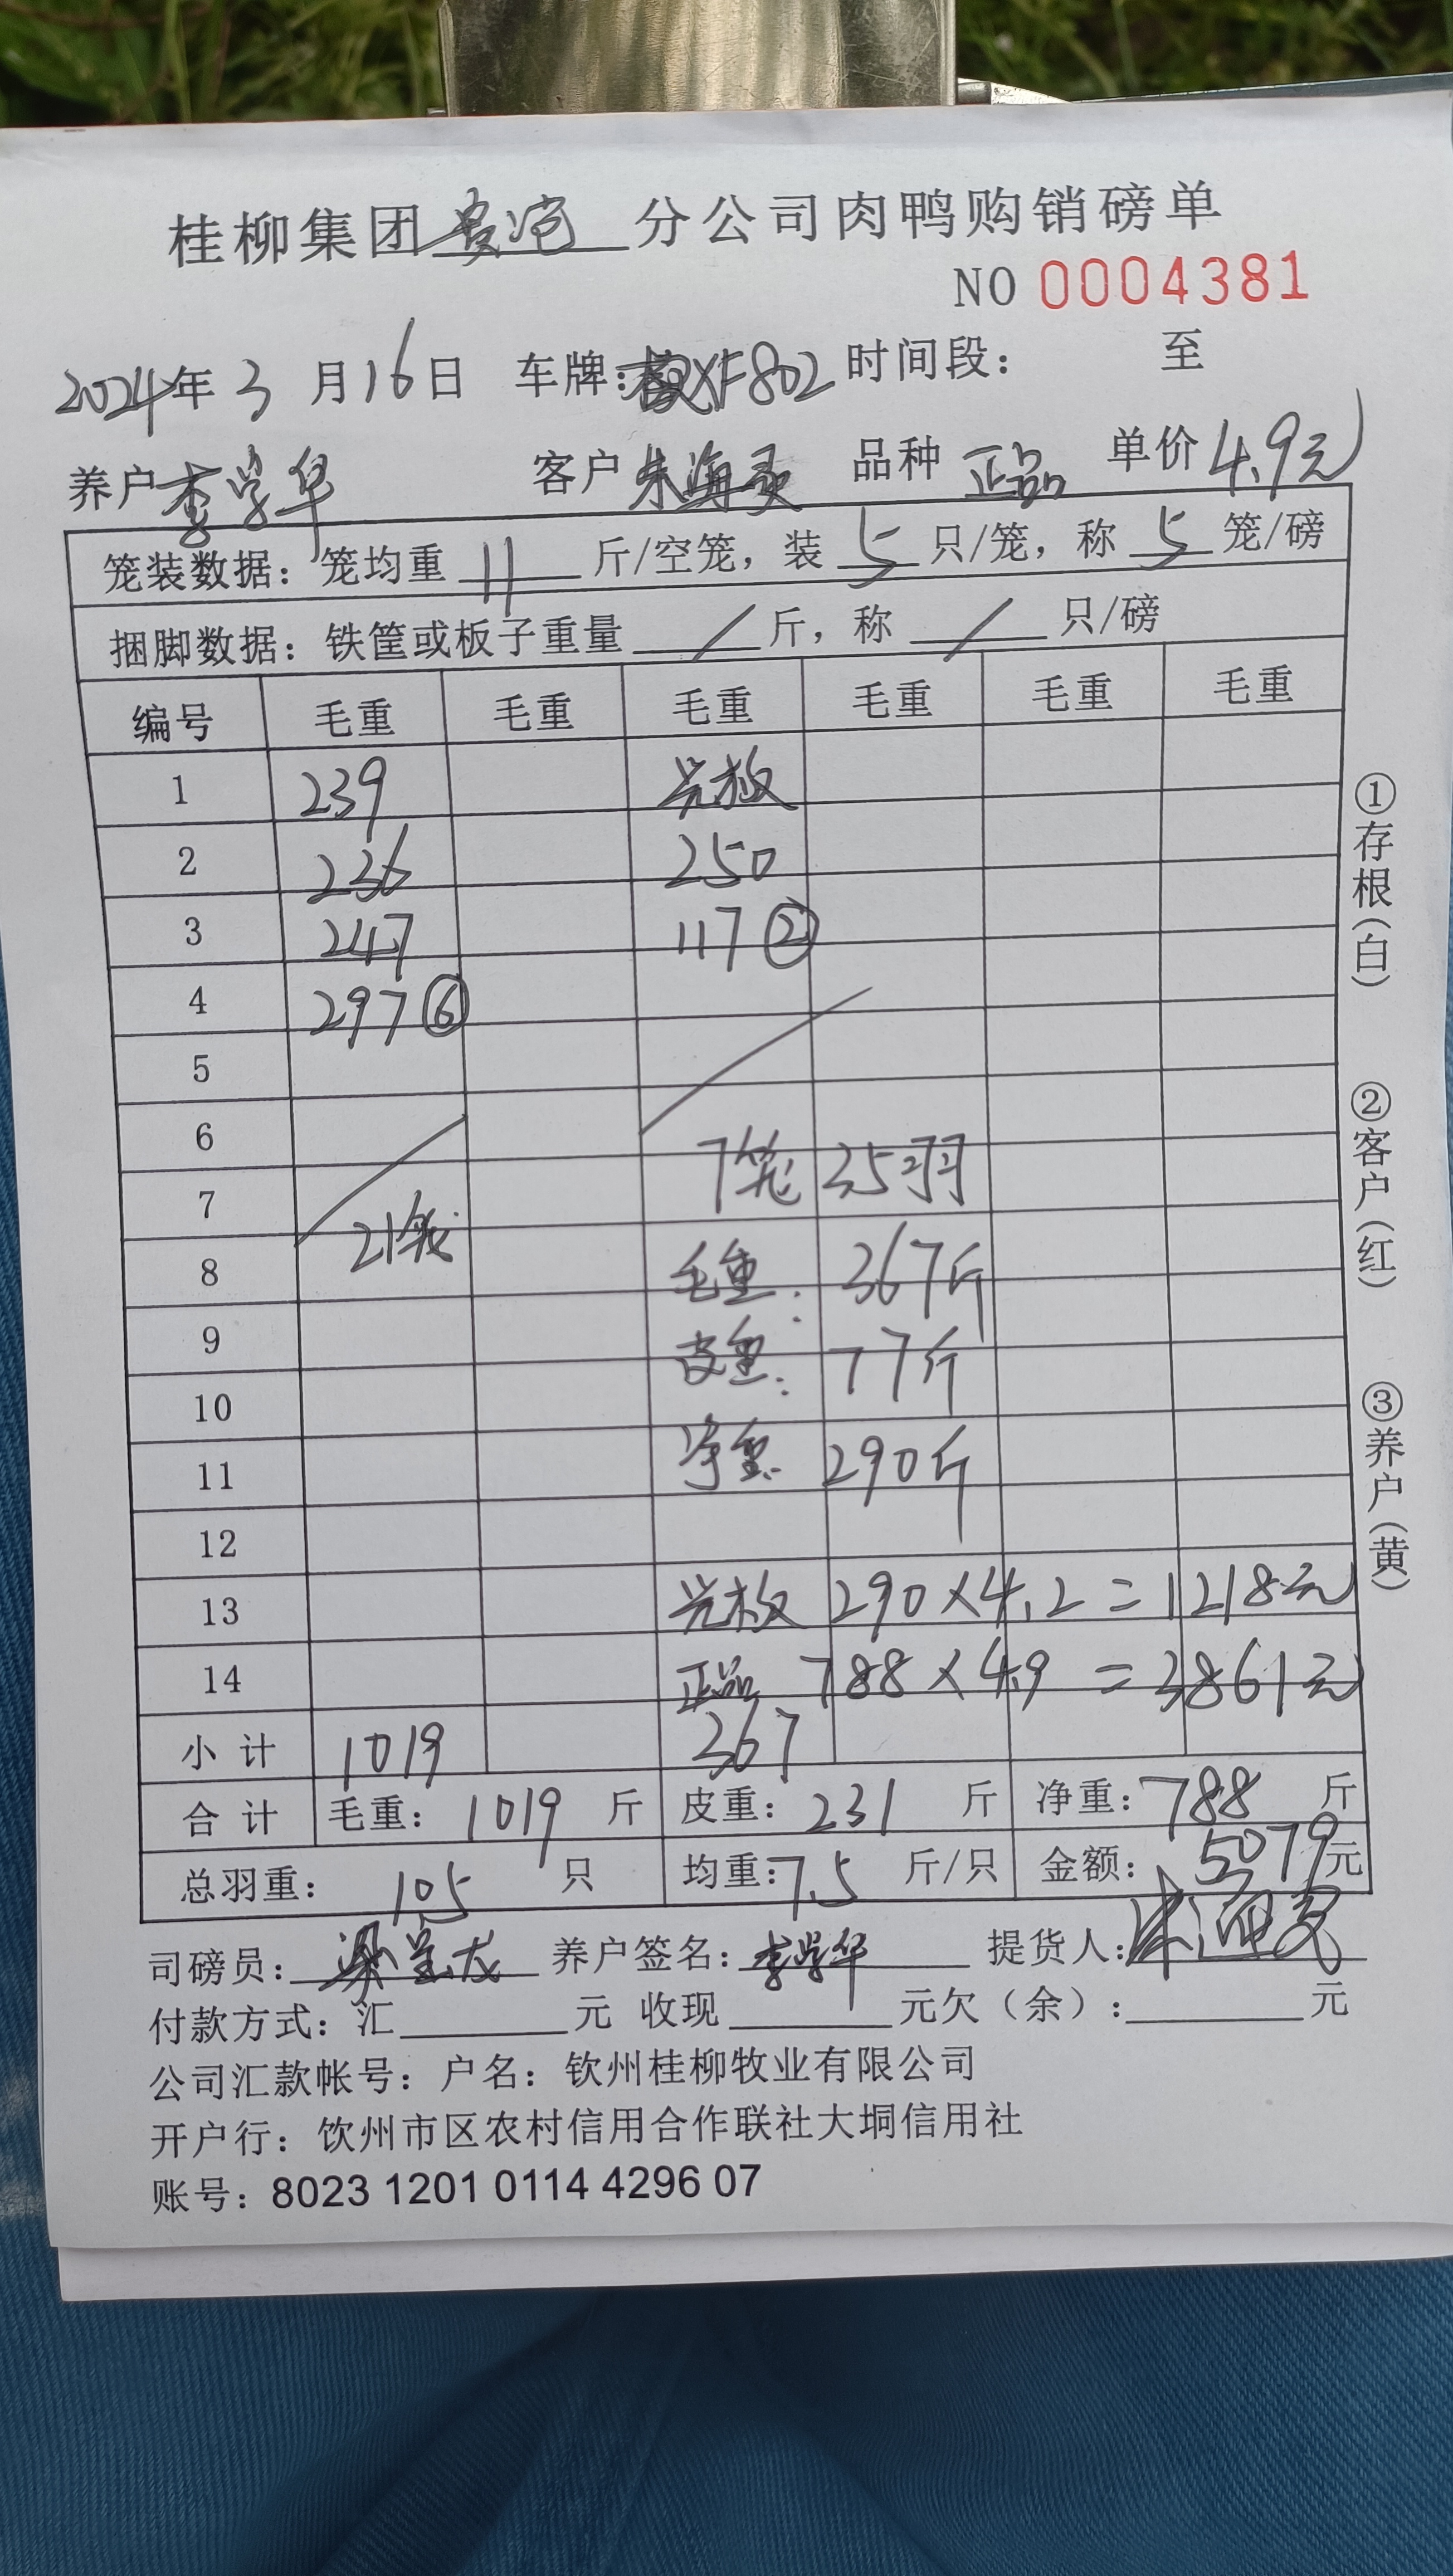 桂柳集团 分公司肉鸭购销磅单
NO 0004381
2024年 3 月 16 日 车牌: XF802 时间段: 至
养户 李学华 客户 朱海 品种 正品 单价 4.9元
笼装数据: 笼均重 11 斤/空笼, 装 5 只/笼, 称 5 笼/磅
捆脚数据: 铁筐或板子重量 / 斤, 称 / 只/磅
编号 毛重 毛重 毛重 毛重 毛重 毛重
1 239
2 236 250
3 247 117 ②
4 297 ⑥
5
6
7 7笼 35羽
8 21笼 毛重: 367斤
9 皮重: 77斤
10
11 净重: 290斤
12
13 290×4.2=1218元
14 正品 788×4.9=3861元
小计 1019 367
合计 毛重: 1019 斤 皮重: 231 斤 净重: 788 斤
总羽重: 105 只 均重: 7.5 斤/只 金额: 5079元
司磅员: 养户签名: 李学华 提货人: 朱海
付款方式: 汇 元 收现 元欠(余): 元
公司汇款帐号: 户名: 钦州桂柳牧业有限公司
开户行: 饮州市区农村信用合作联社大垌信用社
账号: 8023 1201 0114 4296 07
①存根(白)
②客户(红)
③养户(黄)